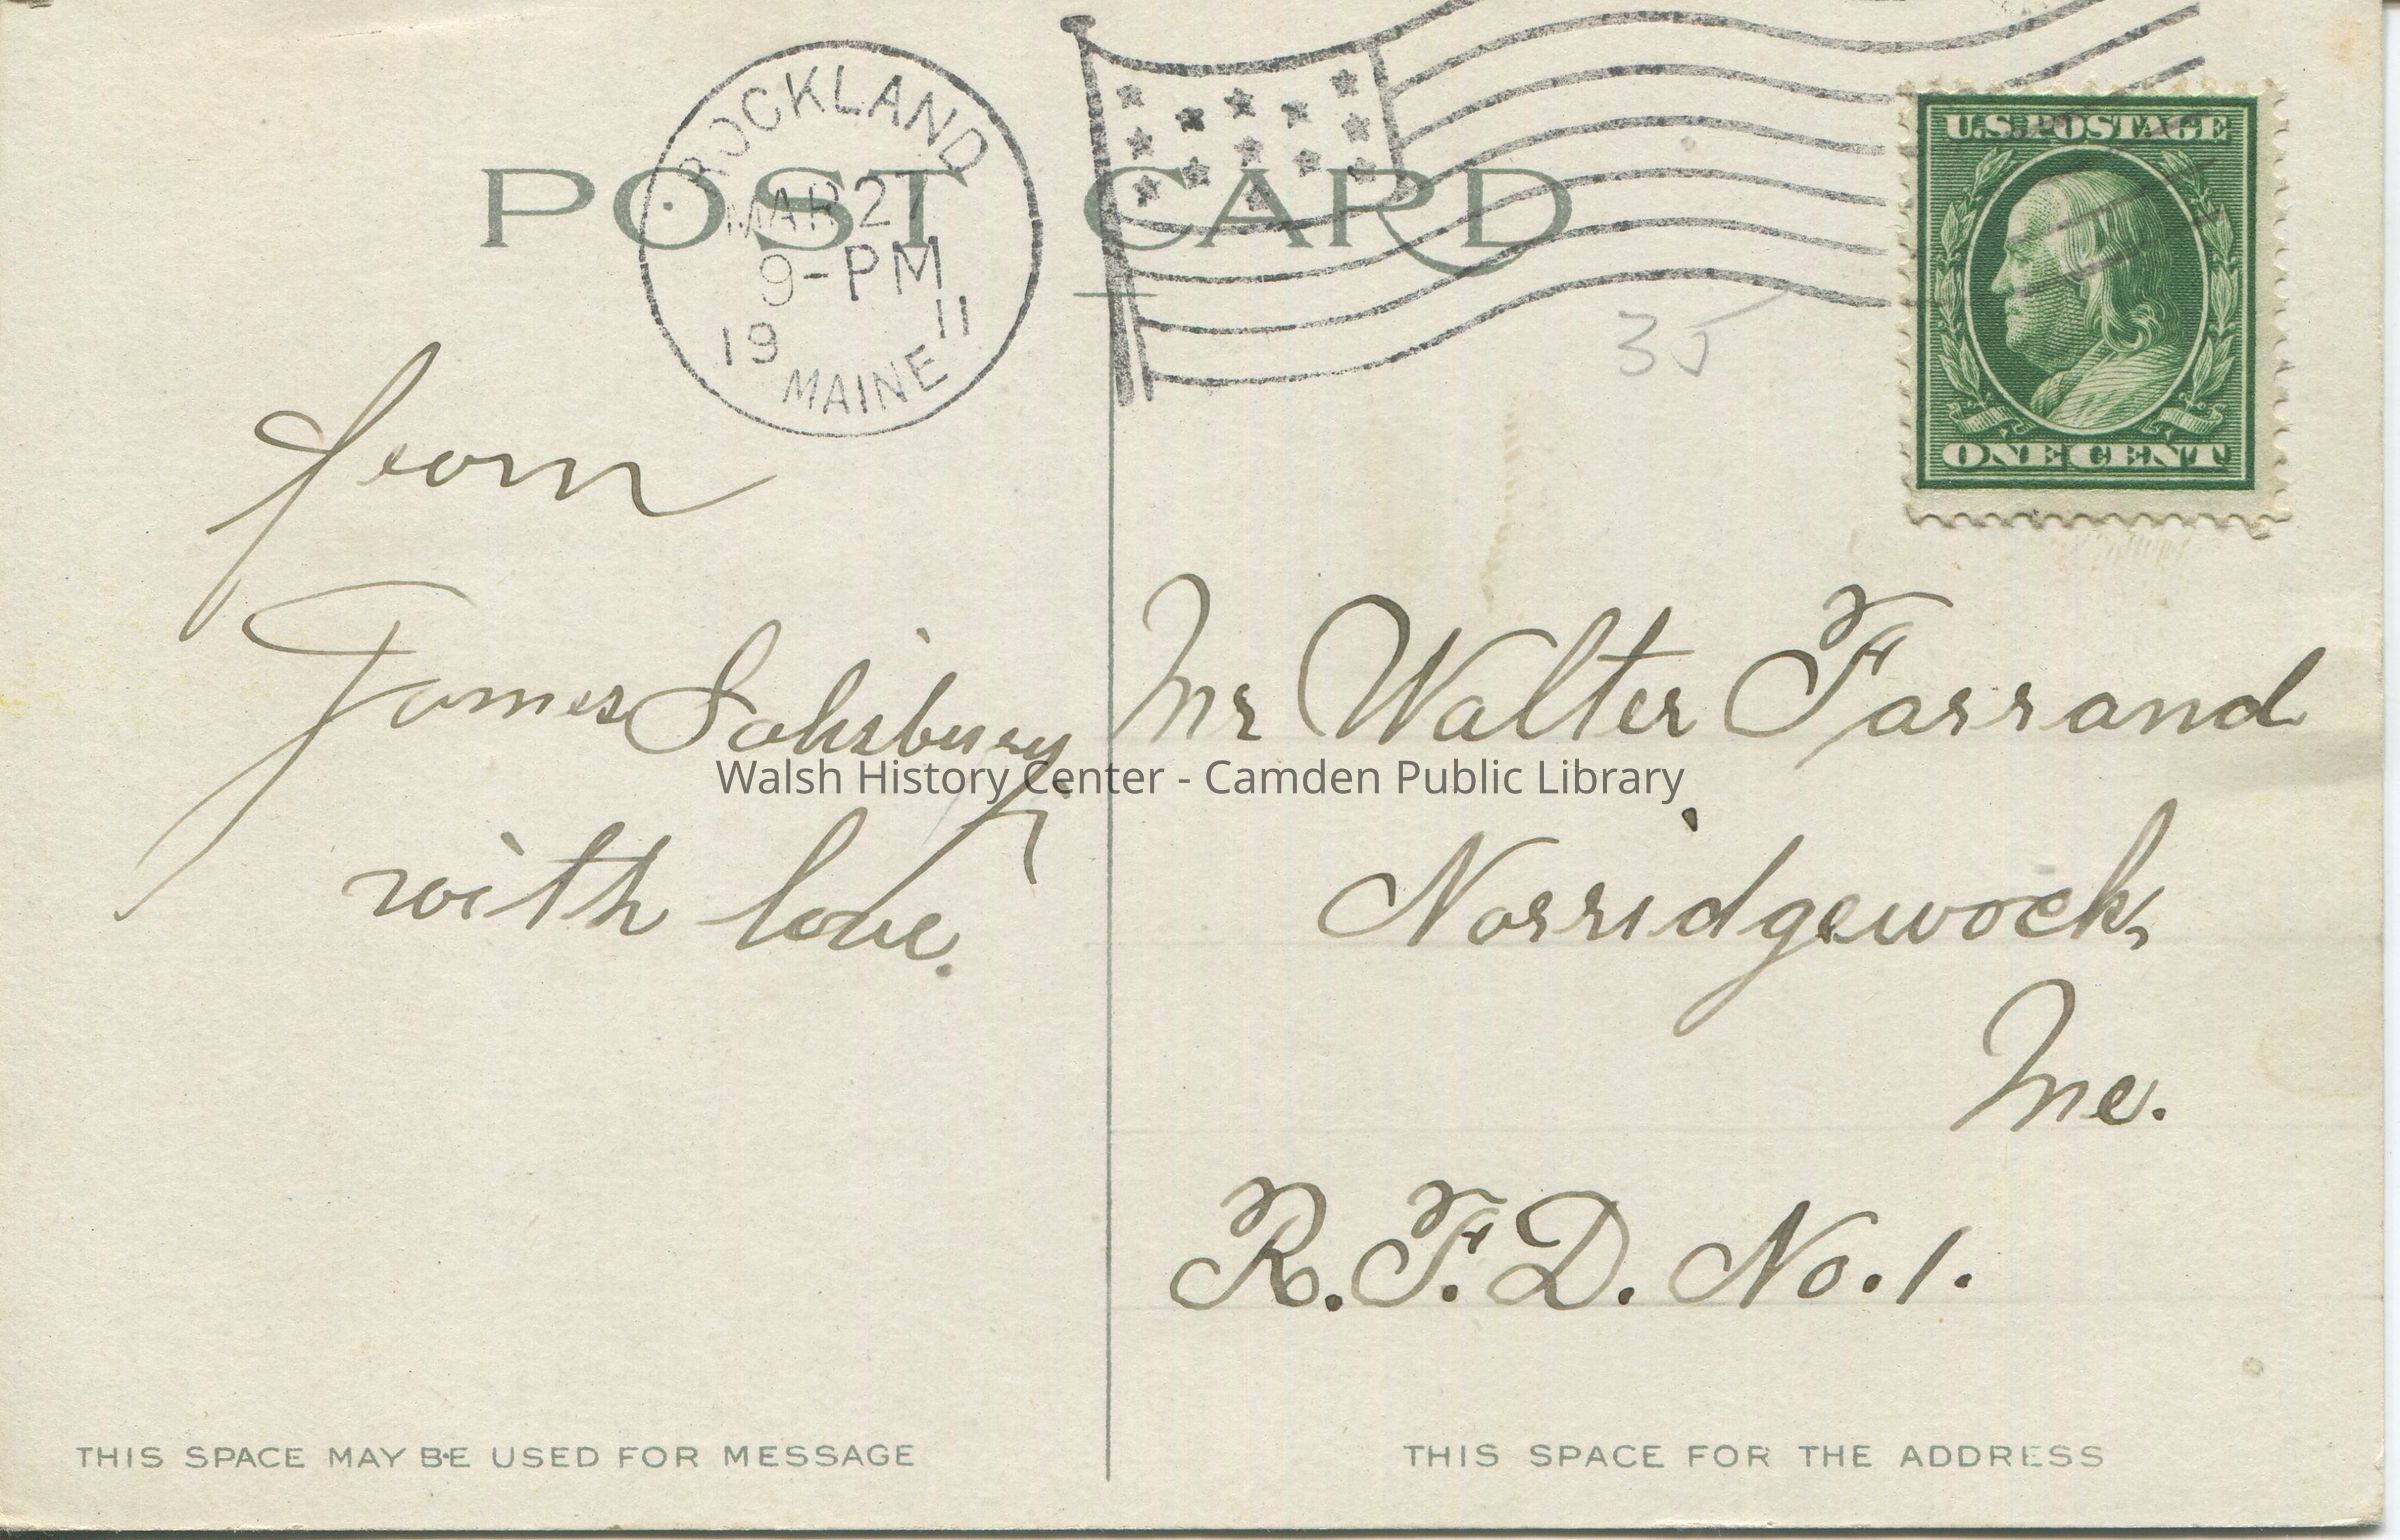 POST CARD
ROCKLAND
MAR 27
9-PM
19 11
MAINE
U.S. POSTAGE
ONE CENT
35
from
James Salisbury
with love.
Mr Walter Farrand
Norridgewock,
Me.
R.F.D. No. 1.
Walsh History Center - Camden Public Library
THIS SPACE MAY BE USED FOR MESSAGE
THIS SPACE FOR THE ADDRESS